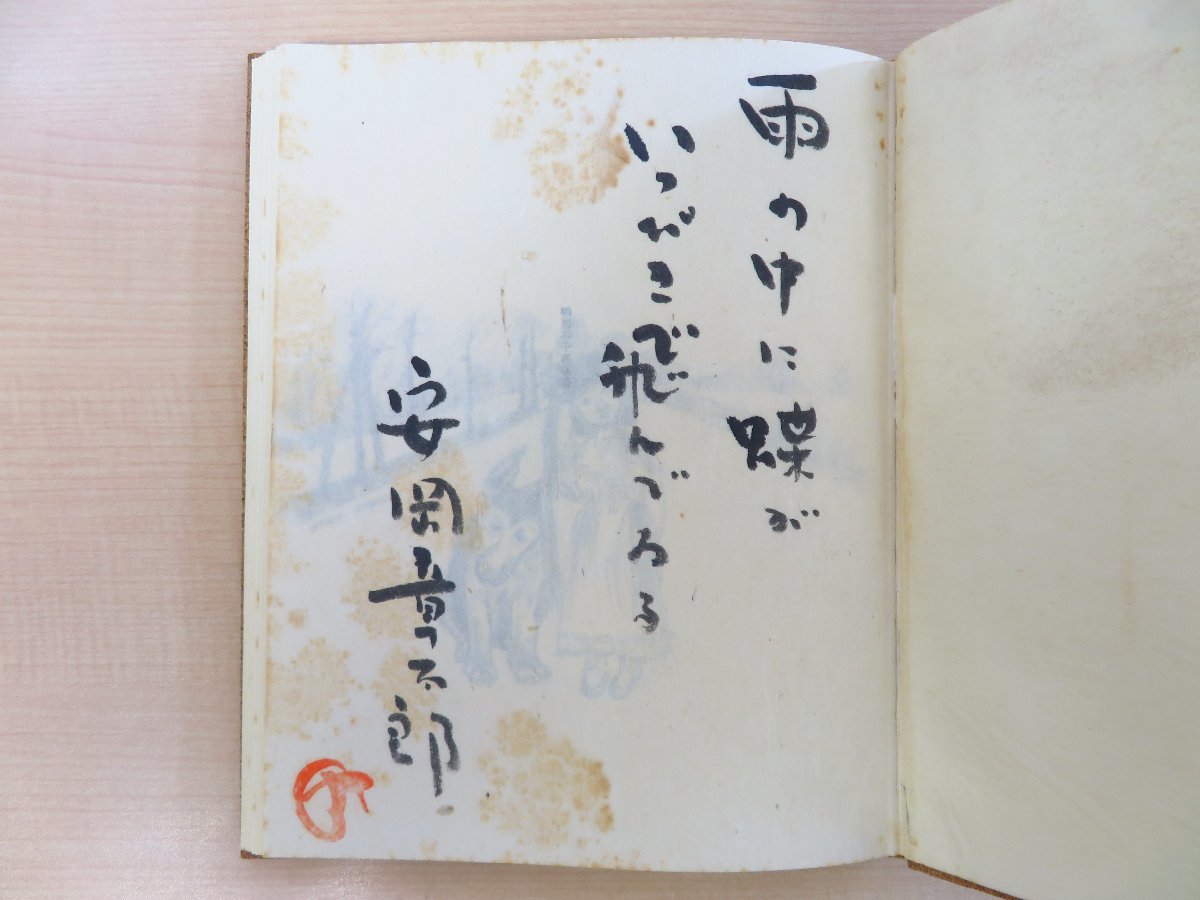 雨の中に蝶が
いつぴきで飛んでゐる
安岡章太郎